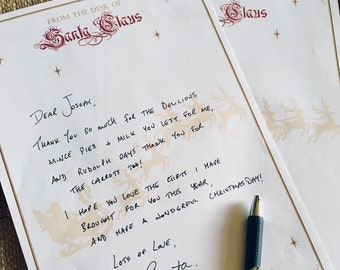 FROM THE DESK OF
Santa Claus
DEAR JOSEPH,
THANK YOU SO MUCH FOR THE DELICIOUS
MINCE PIES + MILK YOU LEFT FOR ME,
AND RUDOLPH SAYS THANK YOU FOR
THE CARROTS TOO!
I HOPE YOU LOVE THE GIFTS I HAVE
BROUGHT FOR YOU THIS YEAR,
AND HAVE A WONDERFUL CHRISTMAS DAY!
LOTS OF LOVE,
Santa
Claus